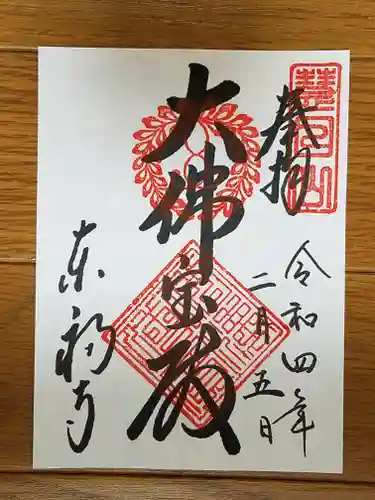 奉拝
慧日山
令和四年
二月五日
大佛宝殿
東福寺